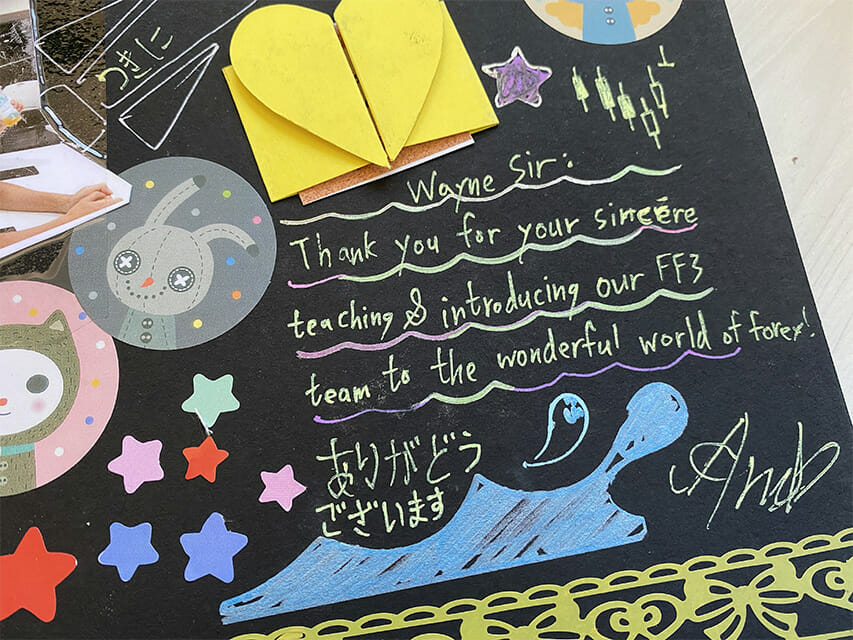 つきに
Wayne Sir:
Thank you for your sincere
teaching & introducing our FF3
team to the wonderful world of forex!
ありがどう
ございます